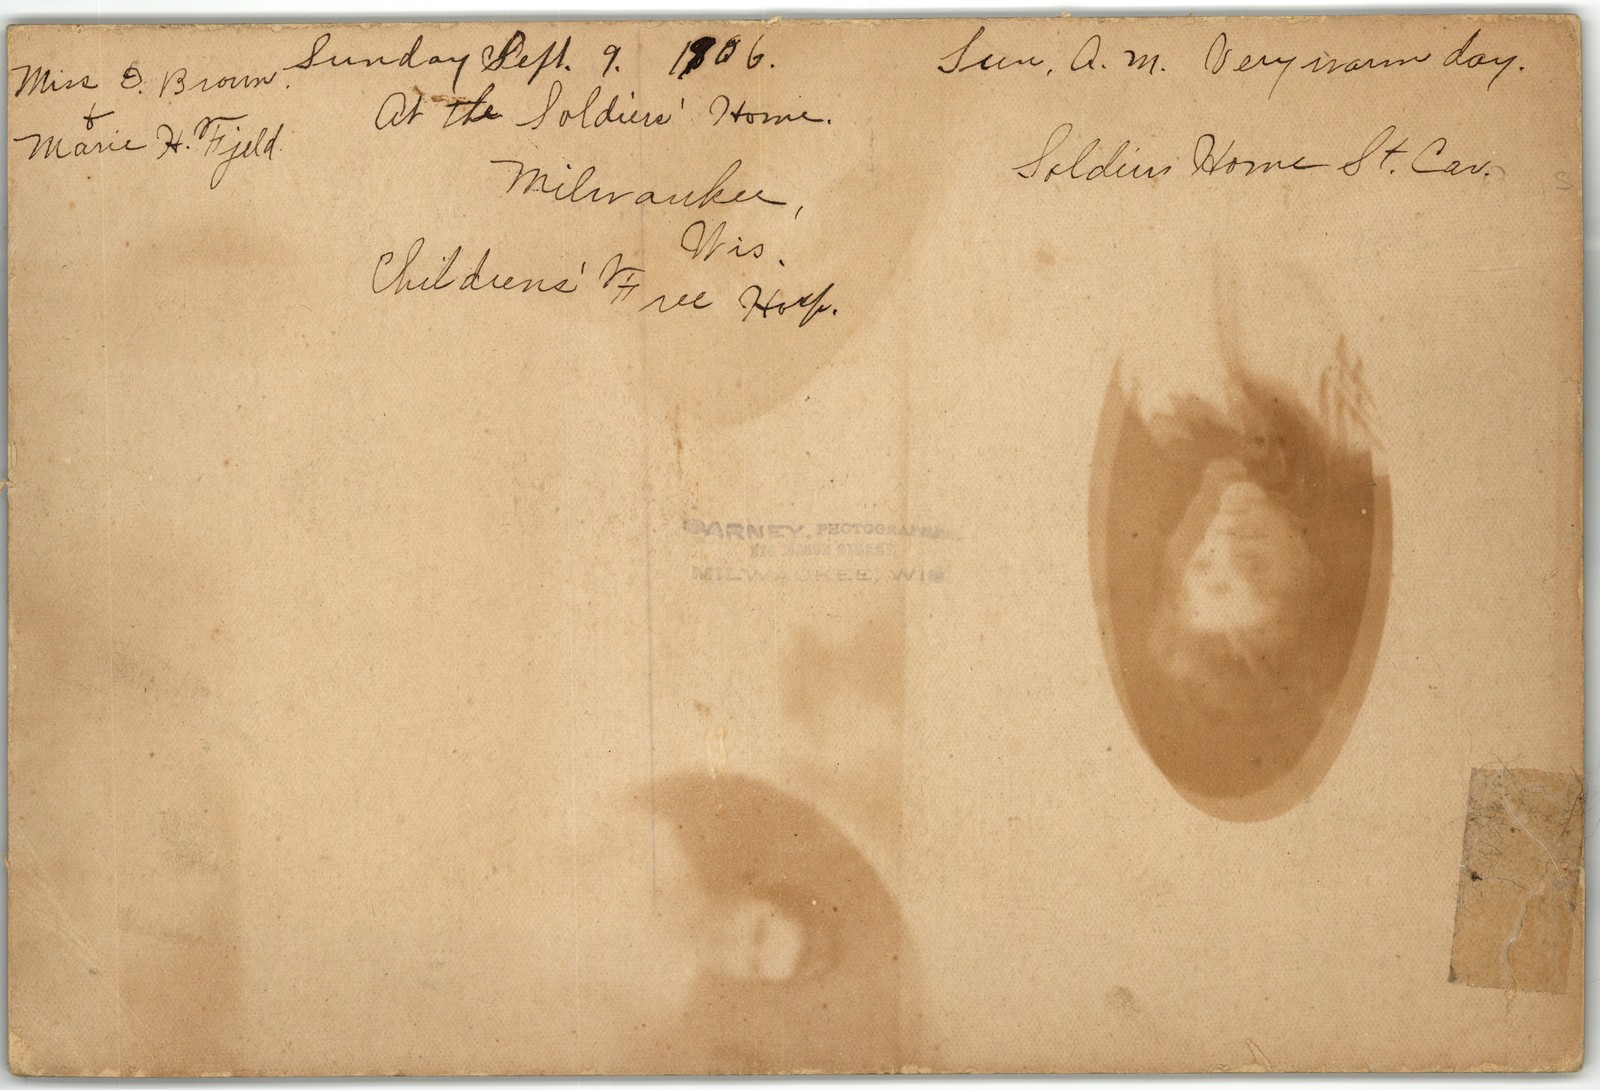 Miss E. Brown.
&
Marie H. Fjeld.
Sunday Sept. 9. 1906.
At the Soldiers' Home.
Milwaukee,
Wis.
Childrens' Free Hosp.
Sun, A. M. Very warm day.
Soldiers Home St. Car.
BARNEY, PHOTOGRAPHER
STREET
MILWAUKEE, WIS